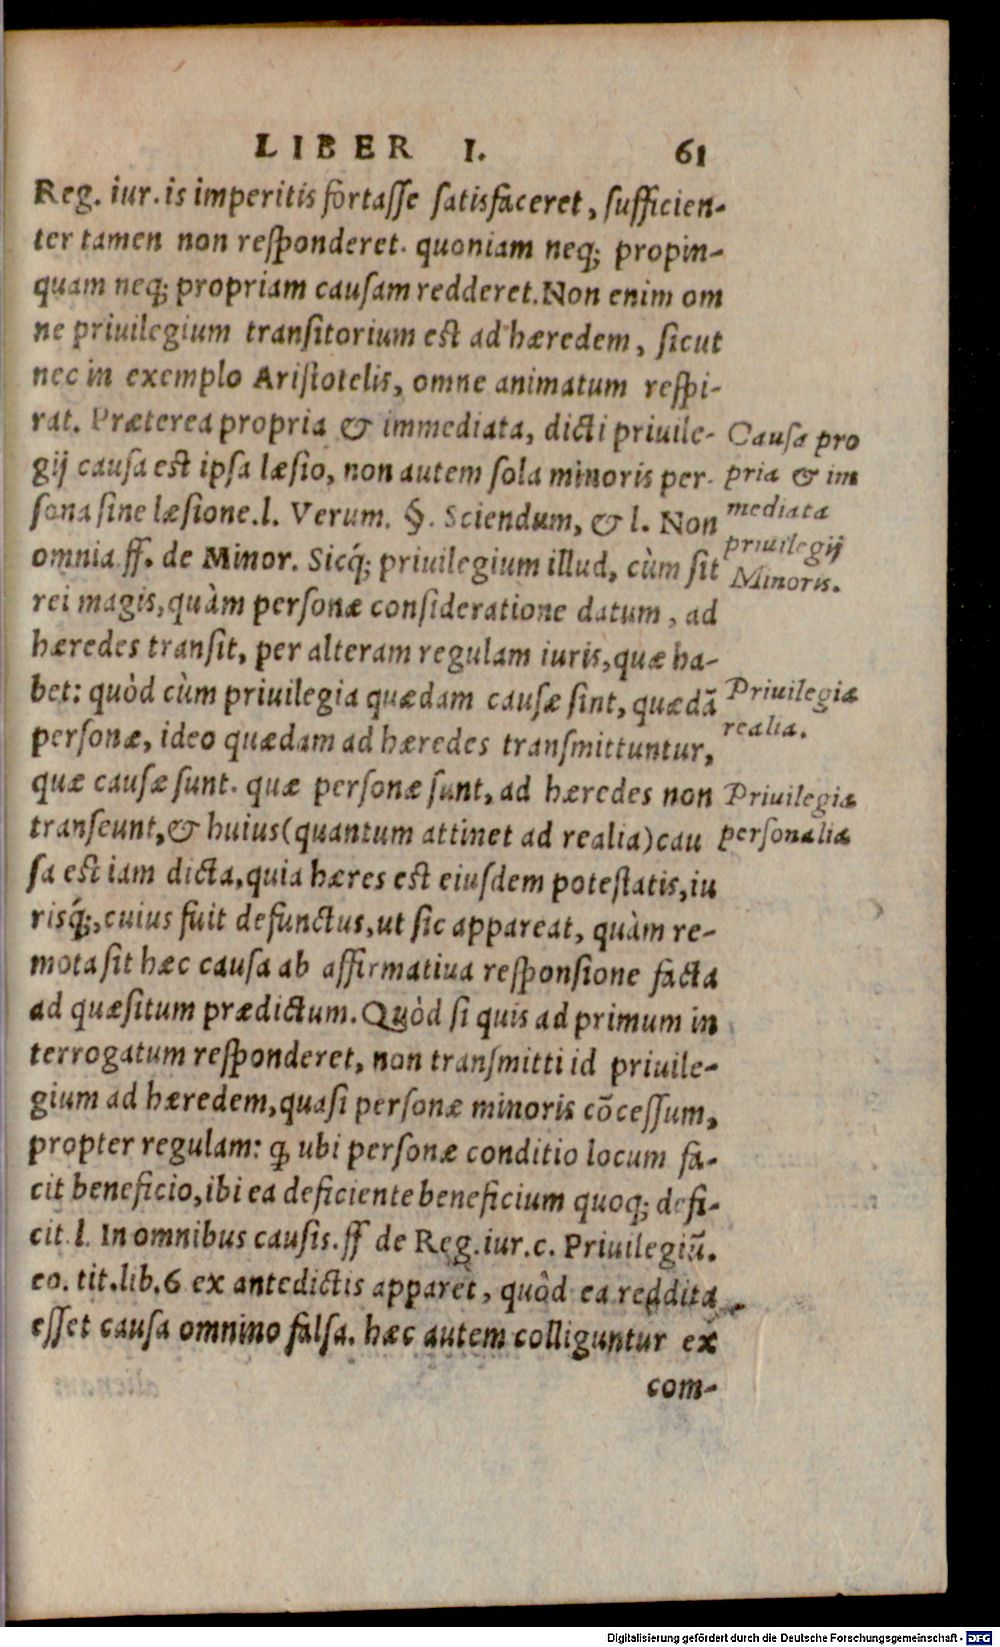 LIBER I. 61
Reg. iur. is imperitis fortaſſe ſatisfaceret, ſufficien-
ter tamen non reſponderet. quoniam neq; propin-
quam neq; propriam cauſam redderet. Non enim om
ne priuilegium tranſitorium est ad hæredem, ſicut
nec in exemplo Ariſtotelis, omne animatum reſpi-
rat. Præterea propria & immediata, dicti priuile-
gij cauſa est ipſa læſio, non autem ſola minoris per-
ſona ſine læſione. l. Verum. §. Sciendum, & l. Non
omnia ff. de Minor. Sicq́; priuilegium illud, cùm ſit
rei magis, quàm perſonæ conſideratione datum, ad
hæredes tranſit, per alteram regulam iuris, quæ ha-
bet: quòd cùm priuilegia quædam cauſæ ſint, quædã
perſonæ, ideo quædam ad hæredes tranſmittuntur,
quæ cauſæ ſunt. quæ perſonæ ſunt, ad hæredes non
tranſeunt, & huius (quantum attinet ad realia) cau
ſa est iam dicta, quia hæres est eiuſdem poteſtatis, iu
risq́;, cuius fuit defunctus, ut ſic appareat, quàm re-
mota ſit hæc cauſa ab affirmatiua reſponſione facta
ad quæſitum prædictum. Quòd ſi quis ad primum in
terrogatum reſponderet, non tranſmitti id priuile-
gium ad hæredem, quaſi perſonæ minoris cõceſſum,
propter regulam: ꝙ ubi perſonæ conditio locum fa-
cit beneficio, ibi ea deficiente beneficium quoq; defi-
cit. l. In omnibus cauſis. ff de Reg. iur. c. Priuilegiũ.
eo. tit. lib. 6 ex antedictis apparet, quòd ea reddita
eſſet cauſa omnino falſa. hæc autem colliguntur ex
com-
Cauſa pro
pria & im
mediata
priuilegij
Minoris.
Priuilegia
realia.
Priuilegia
perſonalia
Digitalisierung gefördert durch die Deutsche Forschungsgemeinschaft - DFG